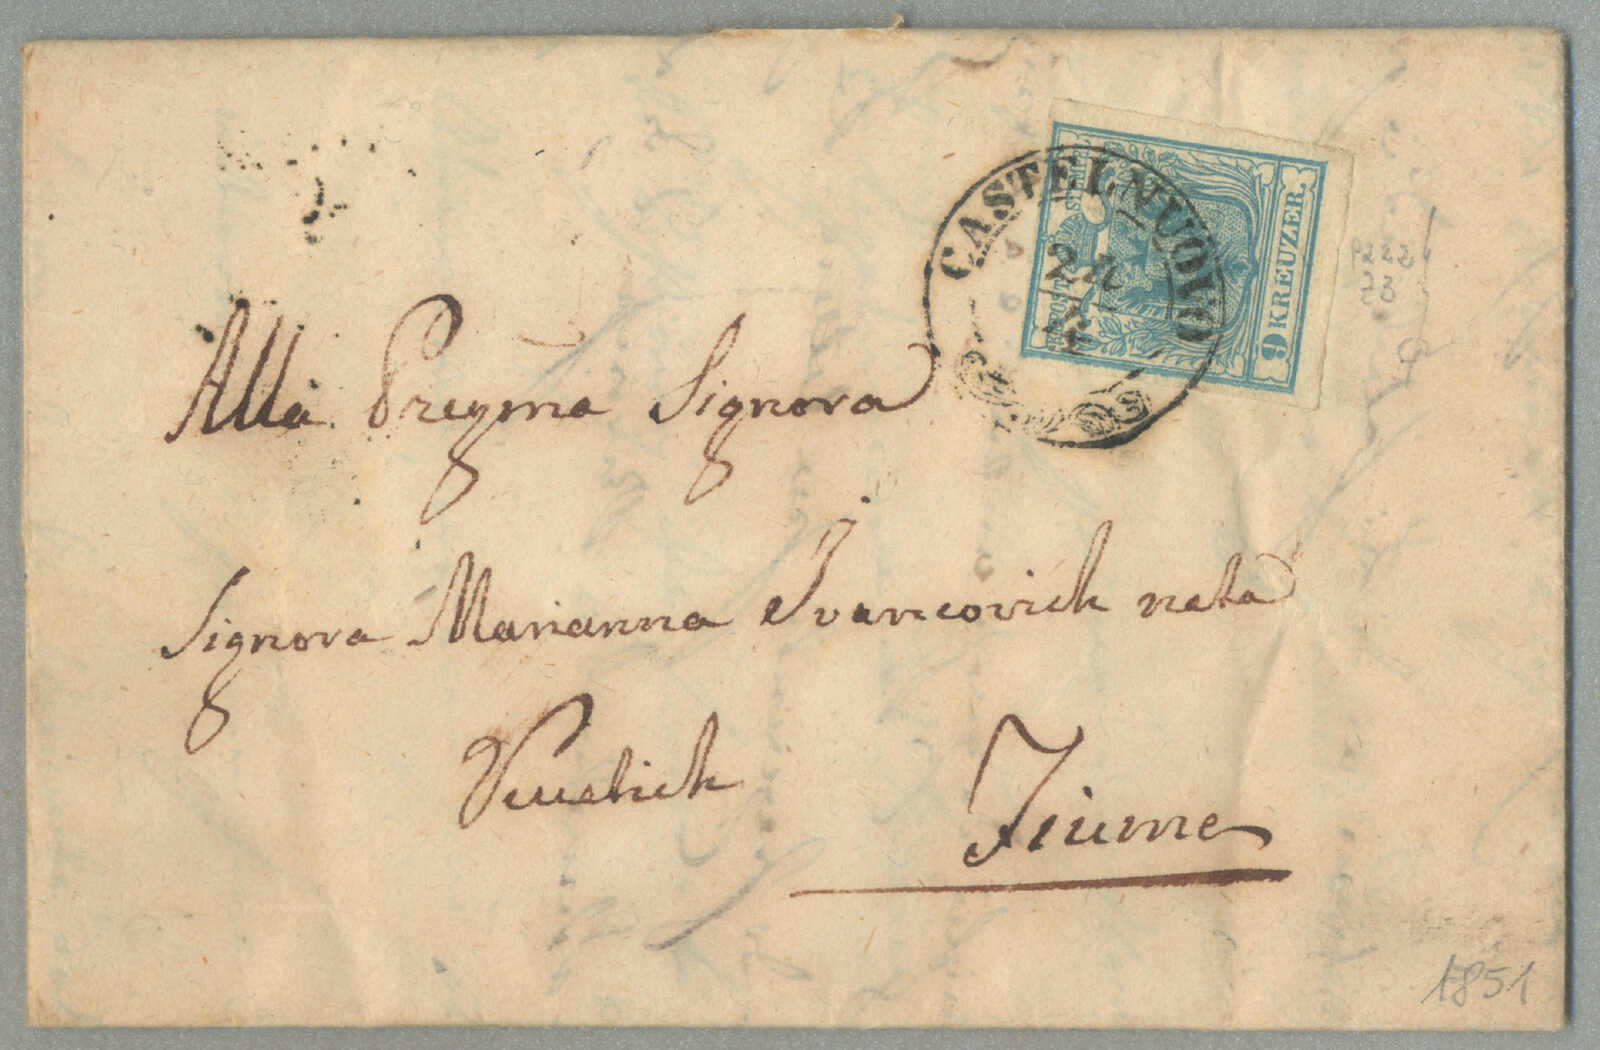 CASTELNUOVO
9 KREUZER.
Alla Pregma Signora
Signora Marianna Ivancovich nata
Fiume
1851